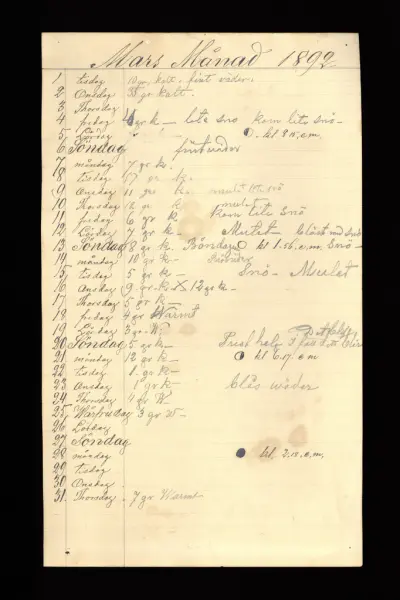 Mars Månad 1892
1 tisdag 10 gr. kalt. fint väder.
2 Onsdag 35 gr kalt.
3 Thorsdag
4 fredag gr k— lite snö kom lite snö—
5 Lörd kl 8 15, a.m.
6 Söndag fintväder
7 måndag 7 gr k.
8 tisdag 17 gr k.
9 Onsdag 11 gr k.
10 Thorsdag 12 gr k
11 fredag 6 gr k kom lite Snö
12 Lördag 7 gr k— Mulet
13 Söndag 8 gr k. Böndag kl 1.56 a.m. Snö—
14 måndag 10 gr k—
15 tisdag 5 gr k— Snö— Mulet
16 Onsdag 9 gr k X 12 gr k—
17 Thorsdag 5 gr k
18 fredag 4 gr Warmt
19 Lördag 3 gr W
20 Söndag 5 gr k—
21 måndag 12 gr k— kl 6.17 a m
22 tisdag 1 gr k—
23 Onsdag 1 gr k— Blås wäder
24 Thorsdag 4 gr W.
25 Wårfrudag 3 gr W—
26 Lördag
27 Söndag
28 måndag kl 2.18. a.m.
29 tisdag
30 Onsdag
31 Thorsdag 7 gr Warmt